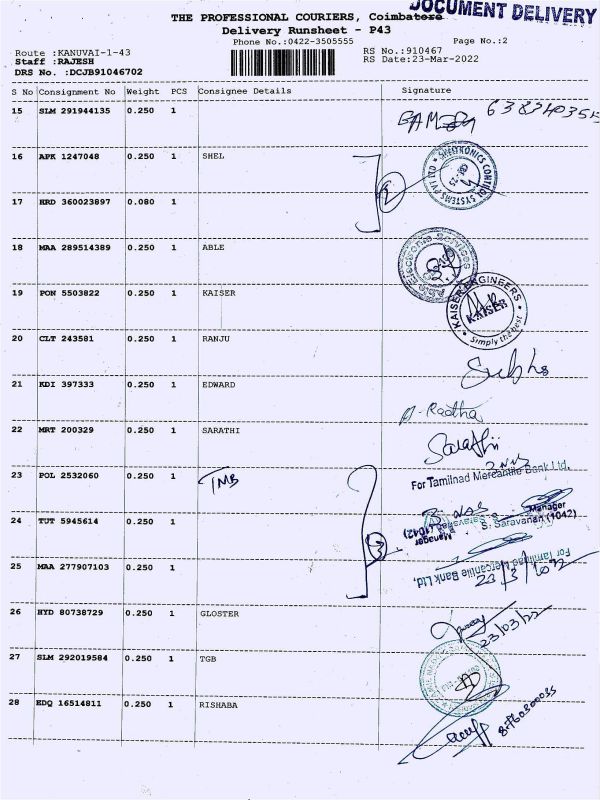 DOCUMENT DELIVERY
THE PROFESSIONAL COURIERS, Coimbatore
Delivery Runsheet - P43
Phone No.:0422-3505555 Page No.:2
Route :KANUVAI-1-43 RS No.:910467
Staff :RAJESH RS Date:23-Mar-2022
DRS No. :DCJB91046702
S No Consignment No Weight PCS Consignee Details Signature
15 SLM 291944135 0.250 1
16 APK 1247048 0.250 1 SHEL
SHELTRONICS CONTROL SYSTEMS PVT LTD
2
17 HRD 360023897 0.080 1
18 MAA 289514389 0.250 1 ABLE
Electronic Services
19 PON 5503822 0.250 1 KAISER
KAISER ENGINEERS
KAISER
Simply the best
20 CLT 243581 0.250 1 RANJU
21 KDI 397333 0.250 1 EDWARD
Radha
22 MRT 200329 0.250 1 SARATHI
Sarathi
23 POL 2532060 0.250 1 TMB
For Tamilnad Mercantile Bank Ltd.
Manager
S. Saravanan (1042)
24 TUT 5945614 0.250 1
3
S. Saravanan (1042)
Manager
25 MAA 277907103 0.250 1
For Tamilnad Mercantile Bank Ltd.
23/3/2022
26 HYD 80738729 0.250 1 GLOSTER
23/03/22
27 SLM 292019584 0.250 1 TGB
28 EDQ 16514811 0.250 1 RISHABA